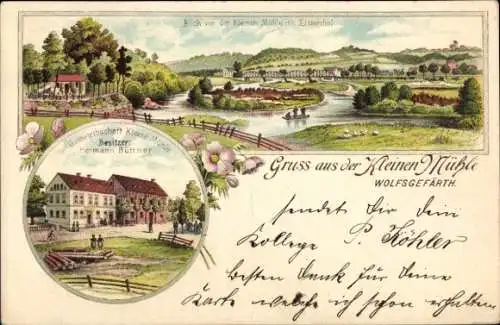 Blick von der kleinen Mühle in's Elsterthal.
Gastwirthschaft Kleine Mühle
Besitzer:
Hermann Büttner
Gruss aus der Kleinen Mühle
WOLFSGEFÄRTH.
sendet Dir dein
Kollege P. Köhler
besten Dank für deine
Karte welche ich schon erhalten